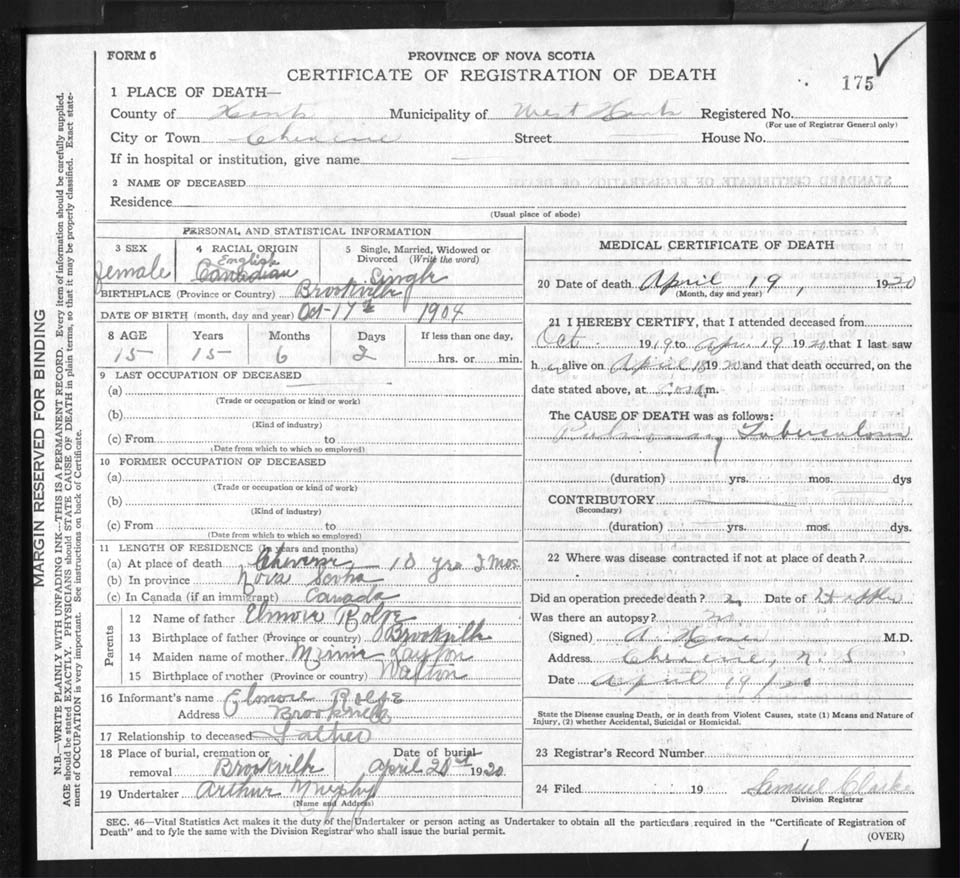 FORM 6
PROVINCE OF NOVA SCOTIA
CERTIFICATE OF REGISTRATION OF DEATH
175
1 PLACE OF DEATH—
County of Hants Municipality of West Hants Registered No.
(For use of Registrar General only)
City or Town Cheverie Street House No.
If in hospital or institution, give name
2 NAME OF DECEASED
Residence
(Usual place of abode)
PERSONAL AND STATISTICAL INFORMATION
3 SEX
female
4 RACIAL ORIGIN
English
Canadian
5 Single, Married, Widowed or
Divorced (Write the word)
Single
BIRTHPLACE (Province or Country) Brookville
DATE OF BIRTH (month, day and year) Oct 17th 1904
8 AGE Years Months Days If less than one day,
15 15 6 2 hrs. or min.
9 LAST OCCUPATION OF DECEASED
(a)
(Trade or occupation or kind or work)
(b)
(Kind of industry)
(c) From to
(Date from which to which so employed)
10 FORMER OCCUPATION OF DECEASED
(a)
(Trade or occupation or kind of work)
(b)
(Kind of industry)
(c) From to
(Date from which to which so employed)
11 LENGTH OF RESIDENCE (In years and months)
(a) At place of death Cheverie 10 yrs 2 Mos.
(b) In province Nova Scotia
(c) In Canada (if an immigrant) Canada
Parents
12 Name of father Elmore Rolfe
13 Birthplace of father (Province or country) Brookville
14 Maiden name of mother Minnie Layton
15 Birthplace of mother (Province or country) Walton
16 Informant's name Elmore Rolfe
Address Brookville
17 Relationship to deceased Father
18 Place of burial, cremation or
removal Brookville
Date of burial
April 20 1920
19 Undertaker Arthur Murphy
(Name and Address)
MEDICAL CERTIFICATE OF DEATH
20 Date of death April 19, 1920
(Month, day and year)
21 I HEREBY CERTIFY, that I attended deceased from
Oct. 1919 to April 19 1920 that I last saw
her alive on April 18 1920 and that death occurred, on the
date stated above, at m.
The CAUSE OF DEATH was as follows:
Pulmonary Tuberculosis
(duration) yrs. mos. dys
CONTRIBUTORY
(Secondary)
(duration) yrs. mos. dys.
22 Where was disease contracted if not at place of death?
Did an operation precede death? Date of
Was there an autopsy?
(Signed) A. M.D.
Address Cheverie, N. S
Date April 19/20
State the Disease causing Death, or in death from Violent Causes, state (1) Means and Nature of
Injury, (2) whether Accidental, Suicidal or Homicidal.
23 Registrar's Record Number
24 Filed 19 Samuel Clarke
Division Registrar
SEC. 46—Vital Statistics Act makes it the duty of the Undertaker or person acting as Undertaker to obtain all the particulars required in the "Certificate of Registration of
Death" and to fyle the same with the Division Registrar who shall issue the burial permit.
(OVER)
MARGIN RESERVED FOR BINDING
N.B.—WRITE PLAINLY WITH UNFADING INK—THIS IS A PERMANENT RECORD. Every item of information should be carefully supplied.
AGE should be stated EXACTLY. PHYSICIANS should STATE CAUSE OF DEATH in plain terms, so that it may be properly classified. Exact state-
ment of OCCUPATION is very important. See instructions on back of Certificate.